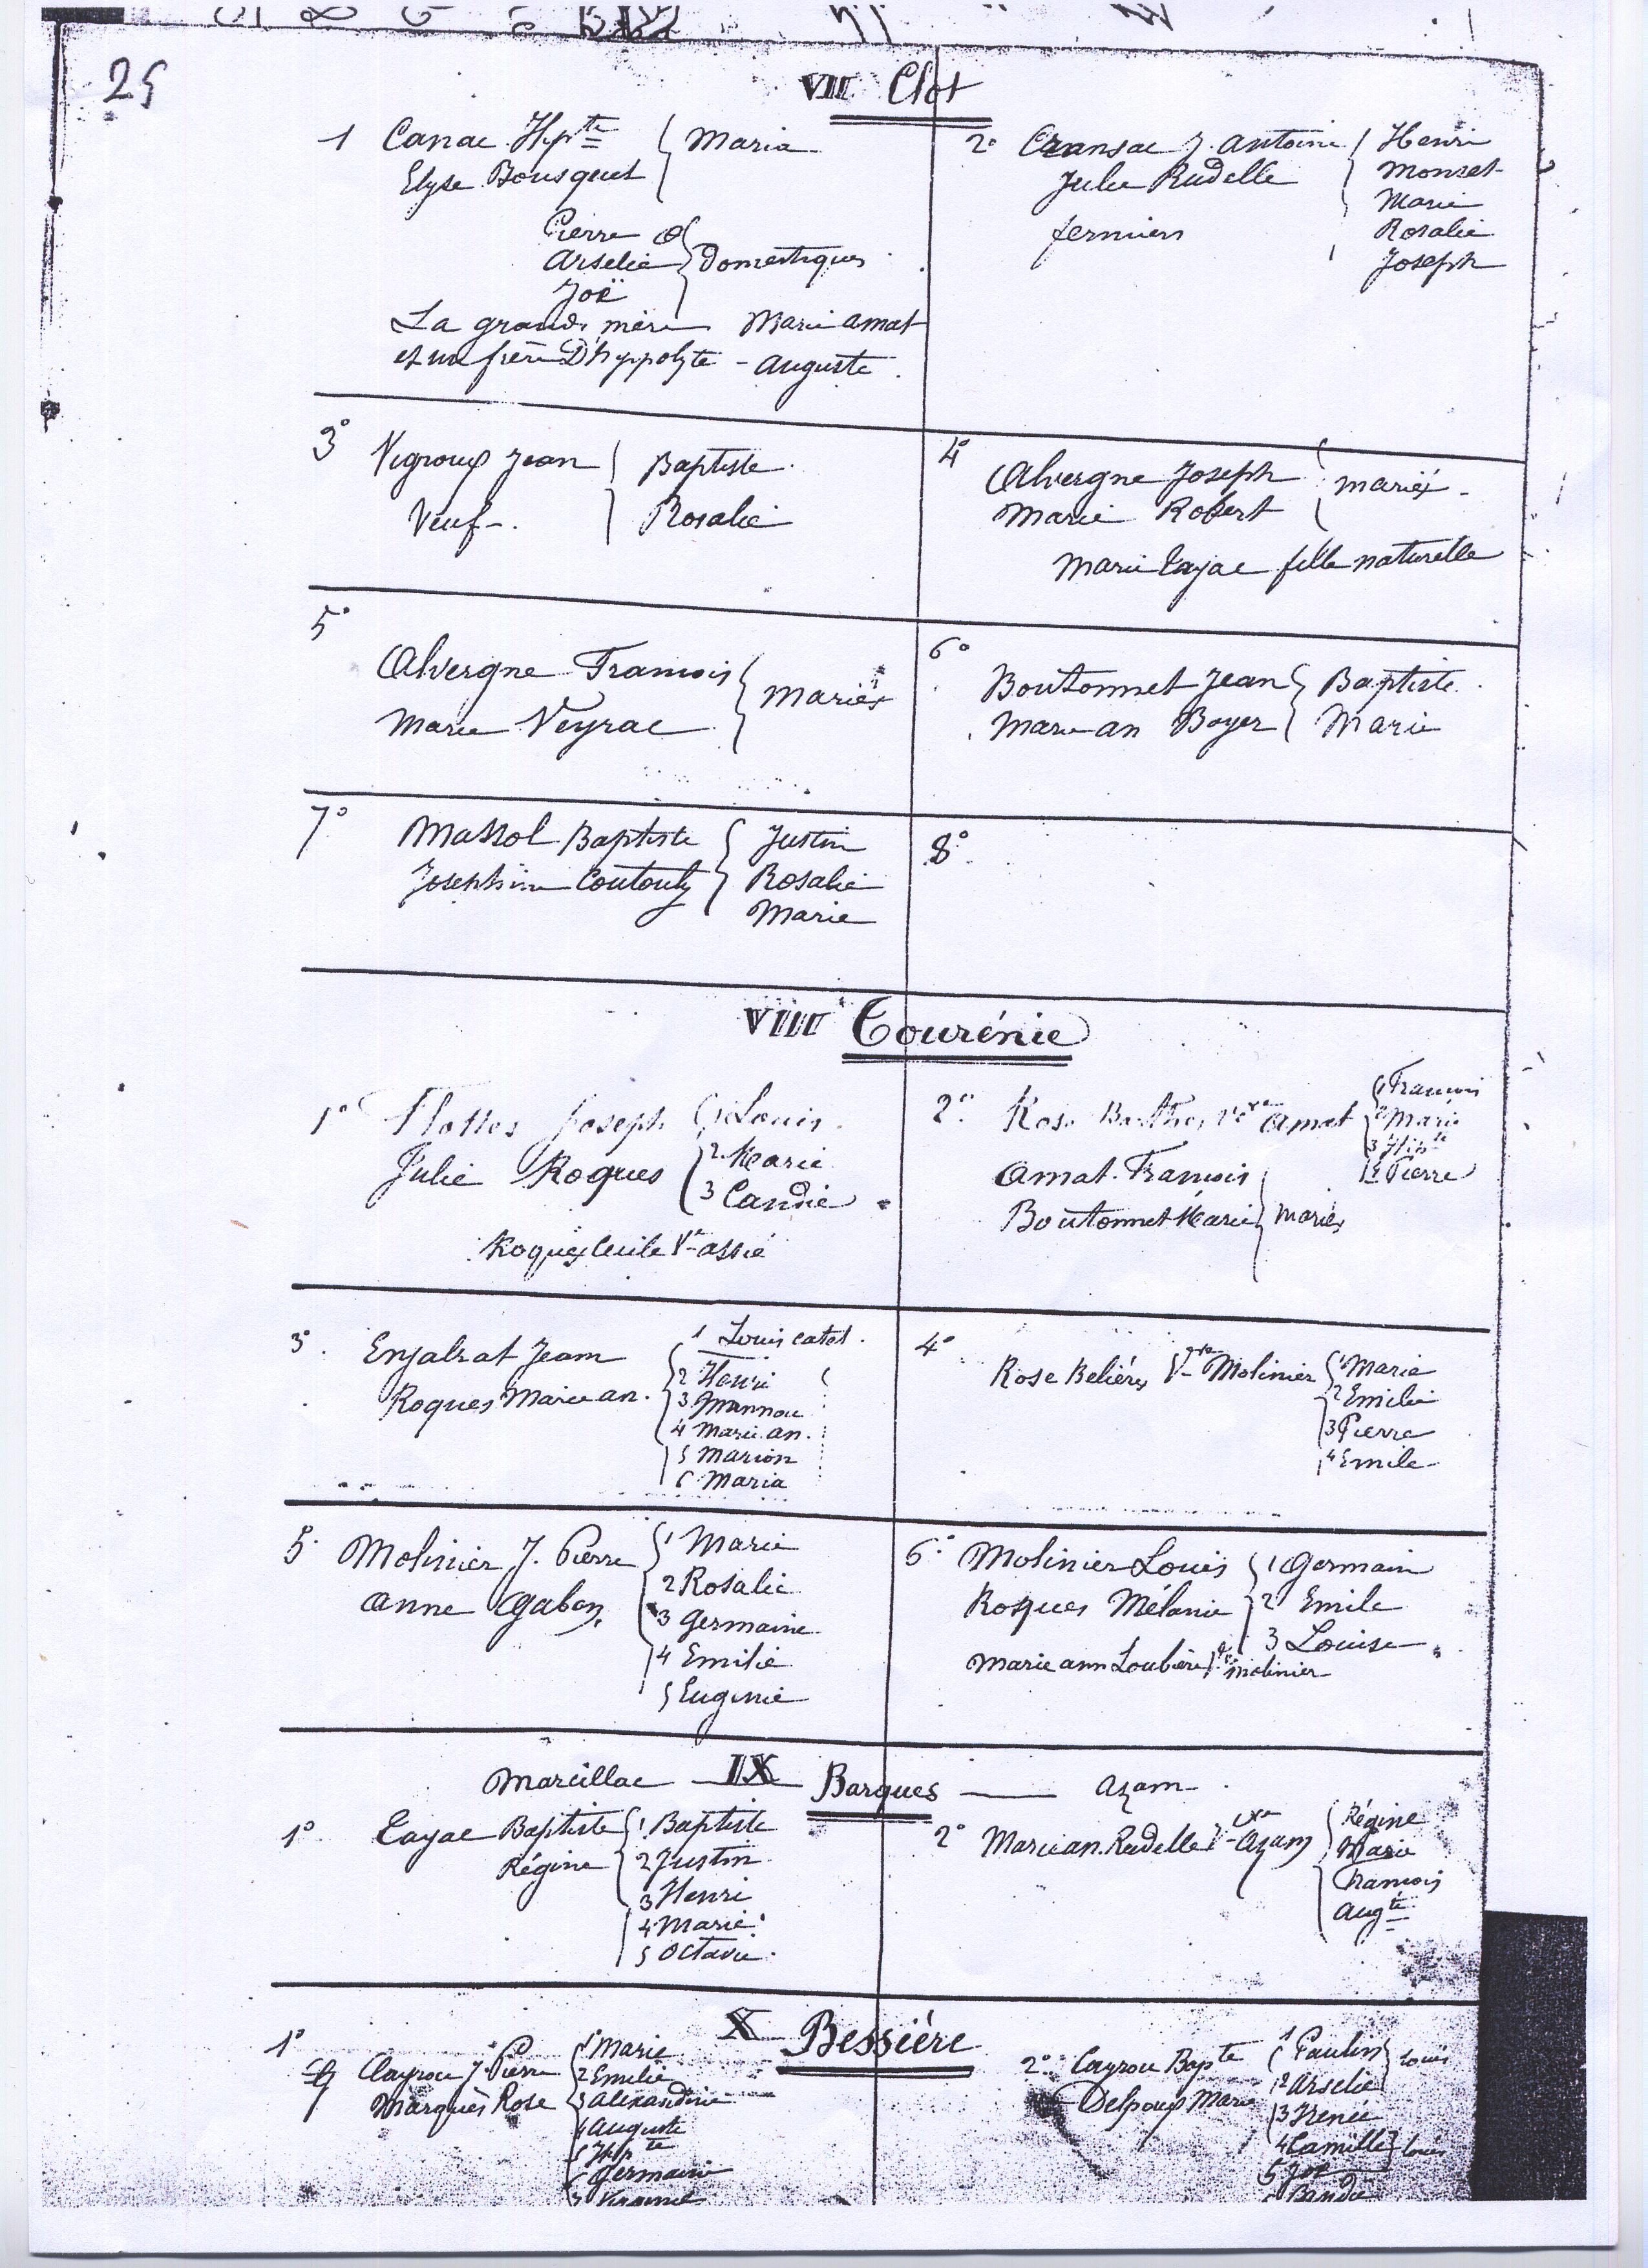 25
VII Clot
1 Canac Hpte { Maria
Elyse Bousquet
Pierre
Arselie } domestiques
Joë
La grand, mère Marie Amat
et un frère D'hyppolyte - Auguste.
2° Cransac J. Antoine { Henri
Julie Rudelle Monset
Marie
fermiers Rosalie
Joseph
3° Vigroux Jean { Baptiste.
Veuf-. Rosalie
4° Alvergne Joseph } mariés-
Marie Robert
Marie Cayac fille naturelle
5° Alvergne Francois } Mariés
Marie Veyrac
6° Boutonnet Jean { Baptiste.
Marie an Boyer { Marie
7° Massol Baptiste { Justin
Josephine Coutouly Rosalie
Marie
8°.
VIII Tourénie
1° Flottes Joseph { 1 Louis
Julie Roques 2 Marie
3 Candie
Roques Cecile Ve Assié
2° Rose Barthes Ve Amat { 1 Francois
2 Marie
3 Hipte
4 Pierre
Amat Francois } mariés
Boutonnet Marie
3° Enjalrat Jean { 1 Louis catet.
Roques Marie an. 2 Henri
3
4 Marie an.
5 Marion
6 Maria
4° Rose Beliéres Ve Molinier { 1 Marie
2 Emilie
3 Pierre
4 Emile
5° Molinier J. Pierre { 1 Marie
Anne Gaben 2 Rosalie
3 Germaine
4 Emilie
5 Eugenie
6° Molinier Louis { 1 Germain
Roques Mélanie 2 Emile
3 Louise
Marie ann Loubière Ve Molinier
Marcillac — IX Barques — Azam
1° Cayac Baptiste { 1 Baptiste
Régine 2 Justin
3 Henri
4 Marie
5 Octavie.
2° Marie an. Rudelle Ve Azam { Régine
Marie
Francois
Augte
X Bessiére
1° Cayrou J. Pierre { 1 Marie
Marquès Rose 2 Emilie
3 Alexandrine
4 Auguste
5 Hipte
6 Germaine
7
2° Cayrou Bapte { 1 Paulin } loués
Delpoux Marie 2 Arselie
3 Irenée
4 Camille } loués
5 Joë
6